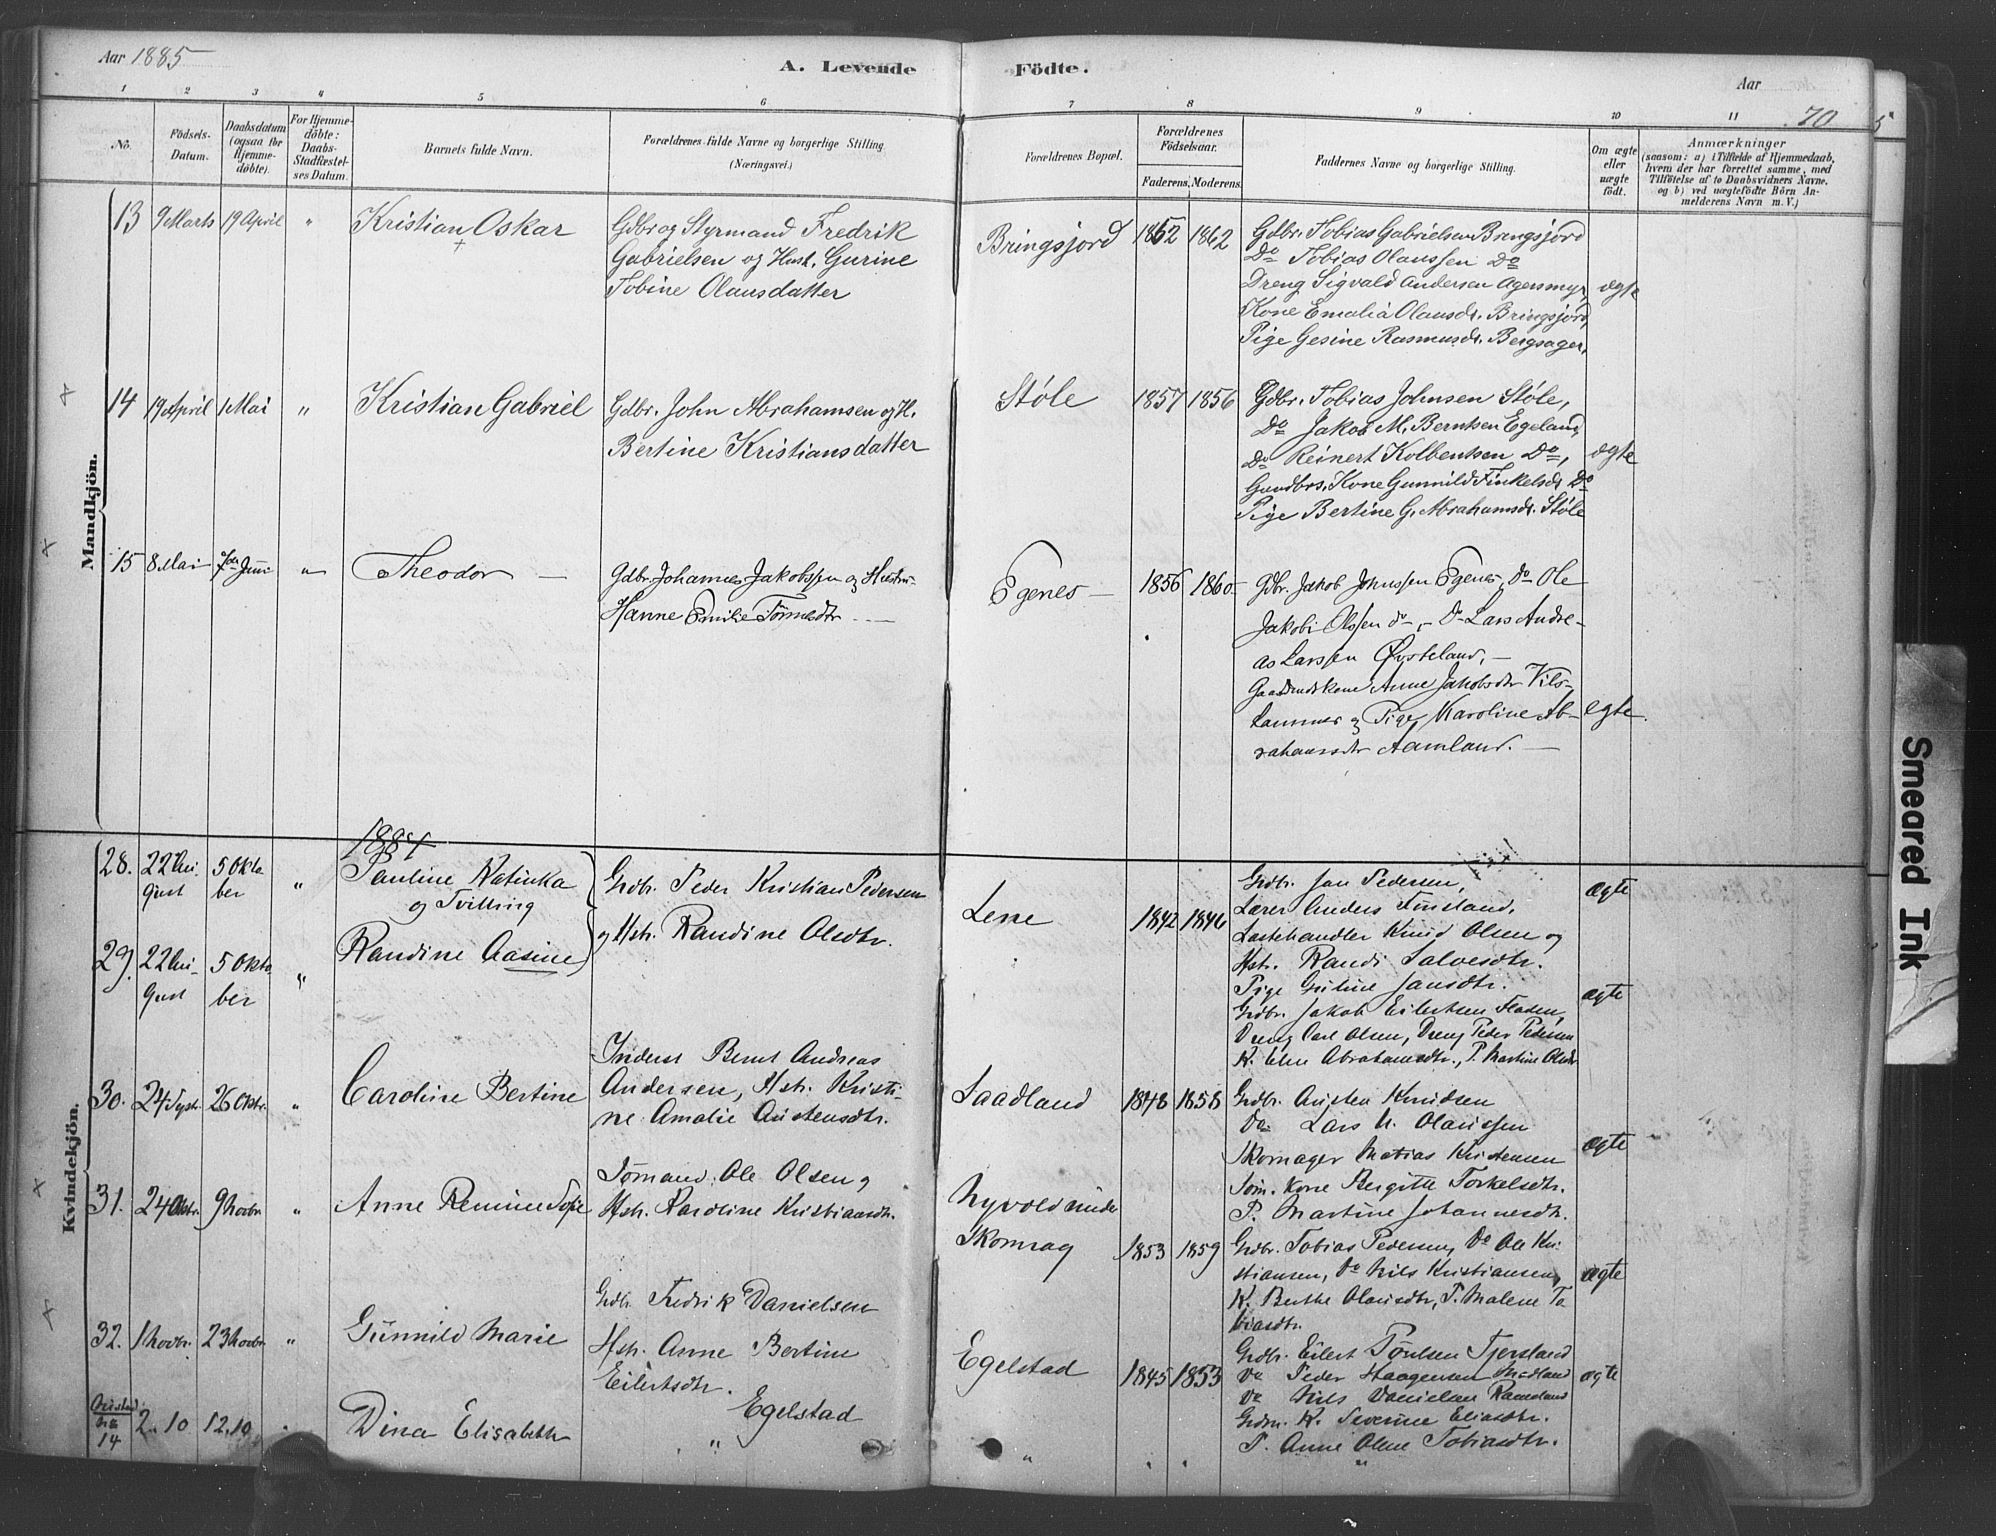 Aar 1885
A. Levende Födte.
Aar
70
5
1 2 3 4 5 6 7 8 9 10 11
No.
Födsels-Datum.
Daabsdatum (ogsaa for Hjemme-döbte).
For Hjemme-döbte: Daabs-Stadfæstel-ses Datum.
Barnets fulde Navn.
Forældrenes fulde Navne og borgerlige Stilling (Næringsvei.)
Forældrenes Bopæl.
Forældrenes Födselsaar.
Faderens. Moderens.
Faddernes Navne og borgerlige Stilling.
Om ægte eller uægte födt.
Anmærkninger
(saasom: a) i Tilfælde af Hjemmedaab, hvem der har forrettet samme, med Tilföielse af to Daabsvidners Navne. og b) ved uægtefödte Börn An-melderens Navn m. V.)
Mandkjön.
13 9 Marts 19 April " Kristian Oskar
Gdbr og Styrmand Fredrik
Gabrielsen og Hust. Gurine
Tobine Olausdatter
Bringsjord 1862 1862
Gdbr. Tobias Gabrielsen Bringsjord
Do Tobias Olaussen Do
Dreng Sigvald Andersen Agersmyr,
Kone Emalia Olausdr. Bringsjord,
Pige Gesine Rasmusdr. Bergsager.
ægte
14 19 April 1 Mai " Kristian Gabriel
Gdbr. John Abrahamsen og H.
Bertine Kristiansdatter
Støle 1857 1856
Gdbr. Tobias Johnsen Støle,
Do Jakob M. Berntsen Egeland,
Do Reinert Kolbensen Do,
Gaardbrs. Kone Gunnild Tinkelsdr. Do
Pige Bertine G. Abrahamsdr. Støle
ægte
15 8 Mai 7de Juni " Theodor —
Gdbr. Johannes Jakobssen og Hustru
Hanne Emilie Tønnesdtr
Egenes — 1856 1860
Gdbr. Jakob Johnssen Egenes, do Ole
Jakob Olssen do, — Do Lars Andre-
as Larssen Øvsteland, —
Kone Anne Jakobsdtr
og Pige Karoline Ab-
rahamsdtr Aamland. —
egte
Kvindekjön.
1884
28. 22 Au-gust 5 Okto ber " Pauline Katinka
og Tvilling
29. 22 Au-gust 5 Okto ber " Randine Aasine
Grdbr. Peder Kristian Pedersen
og Hstr. Randine Olsdtr.
Lene 1842 1846
Grdbr. Jan Pedersen,
Lærer Anders Finsland,
Lastehandler Knud Olsen og
Hstr. Randi Salvesdtr.
Pige Guline Jansdtr.
ægte
Grdbr. Jakob Eilertsen Fladen,
Dreng Carl Olsen, Dreng Peder Pedersen
K. Elen Abrahamsdtr., P. Martine Olsdtr
ægte
30. 24 Septr. 26 Oktr. " Caroline Bertine
Inderst Bernt Andreas
Andersen, Hstr. Kristi-
ne Amalie Austensdtr.
Laadland 1848 1858
Grdbr. Austen Knudsen
Do Lars N. Olaussen
Skomager Matias Kristensen
Søm. Kone Bergitte Torkelsdtr.
P. Martine Johannesdtr.
ægte
31. 24 Oktr. 9 Novbr. " Anne Remine Sofie
Sømand Ole Olsen og
Hstr. Karoline Kristiansdtr.
Nyvold under
Skomrag 1853 1859
Grdbr. Tobias Pedersen, Do Ole Kri-
stiansen, Do Nils Kristiansen,
K. Berthe Olausdtr, P. Malene To
biasdtr.
ægte
32. 1 Novbr. 23 Novbr. " Gunnild Marie
Grdbr. Fredrik Danielsen
Hstr. Anne Bertine
Eilertsdtr.
Egelstad 1845 1853
Grdbr. Eilert Tønnesen Tjersland
Do Peder Haagensen Midland
Do Nils Danielsen Rameland
Grdm. K. Severine Eliasdtr.
P. Anne Oline Tobiasdtr.
ægte
14 2.10 12.10 " Dina Elisabeth
Egelstad
"
Smeared Ink